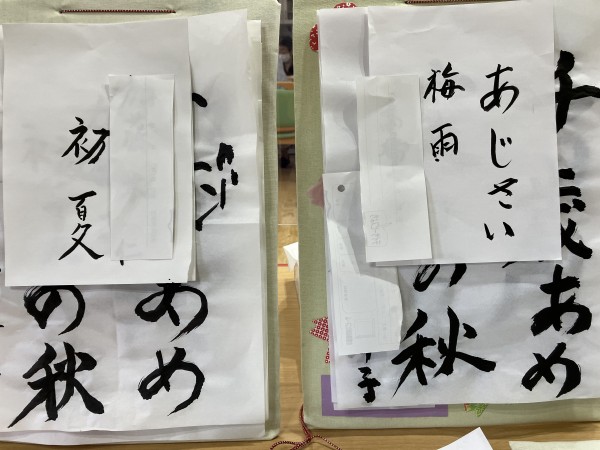 初夏
あめ
の秋
あじさい
梅雨
千歳あめ
の秋